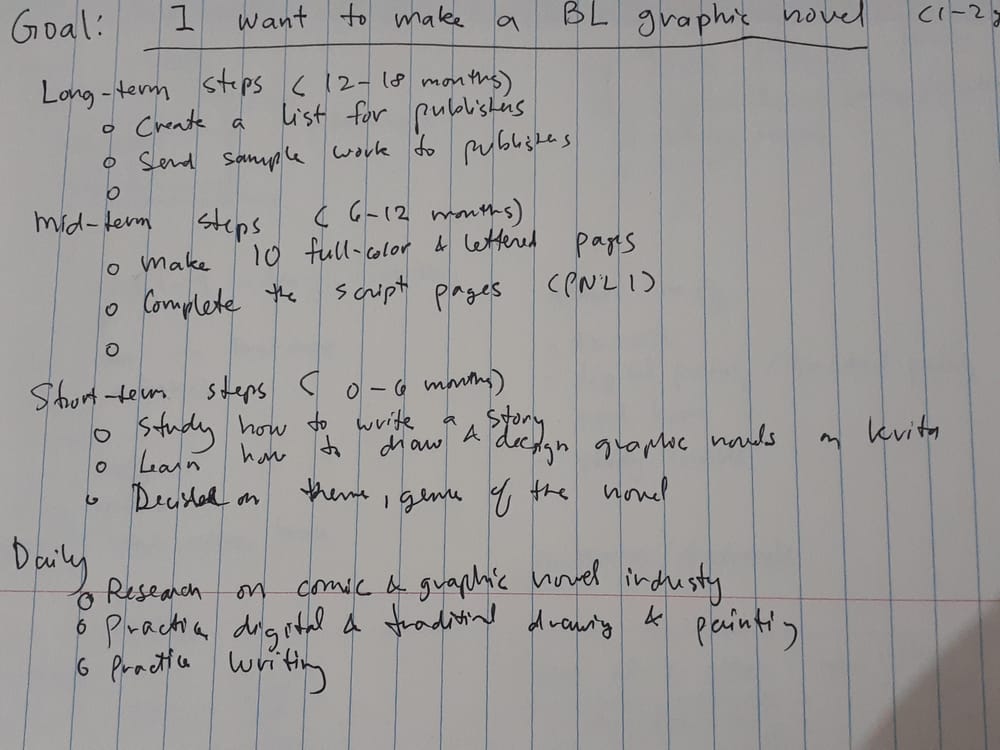 Goal: I want to make a BL graphic novel (1-2
Long-term steps (12-18 months)
o Create a list for publishers
o Send sample work to publishers
o
Mid-term steps (6-12 months)
o Make 10 full-color & lettered pages
o Complete the script pages
o
Short-term steps (0-6 months)
o Study how to write a story
o Learn how to draw & design graphic novels on Krita
o Decided on theme, genre of the novel
Daily
o Research on comic & graphic novel industy
o Practice digital & traditinl drawing & painting
o Practice writing